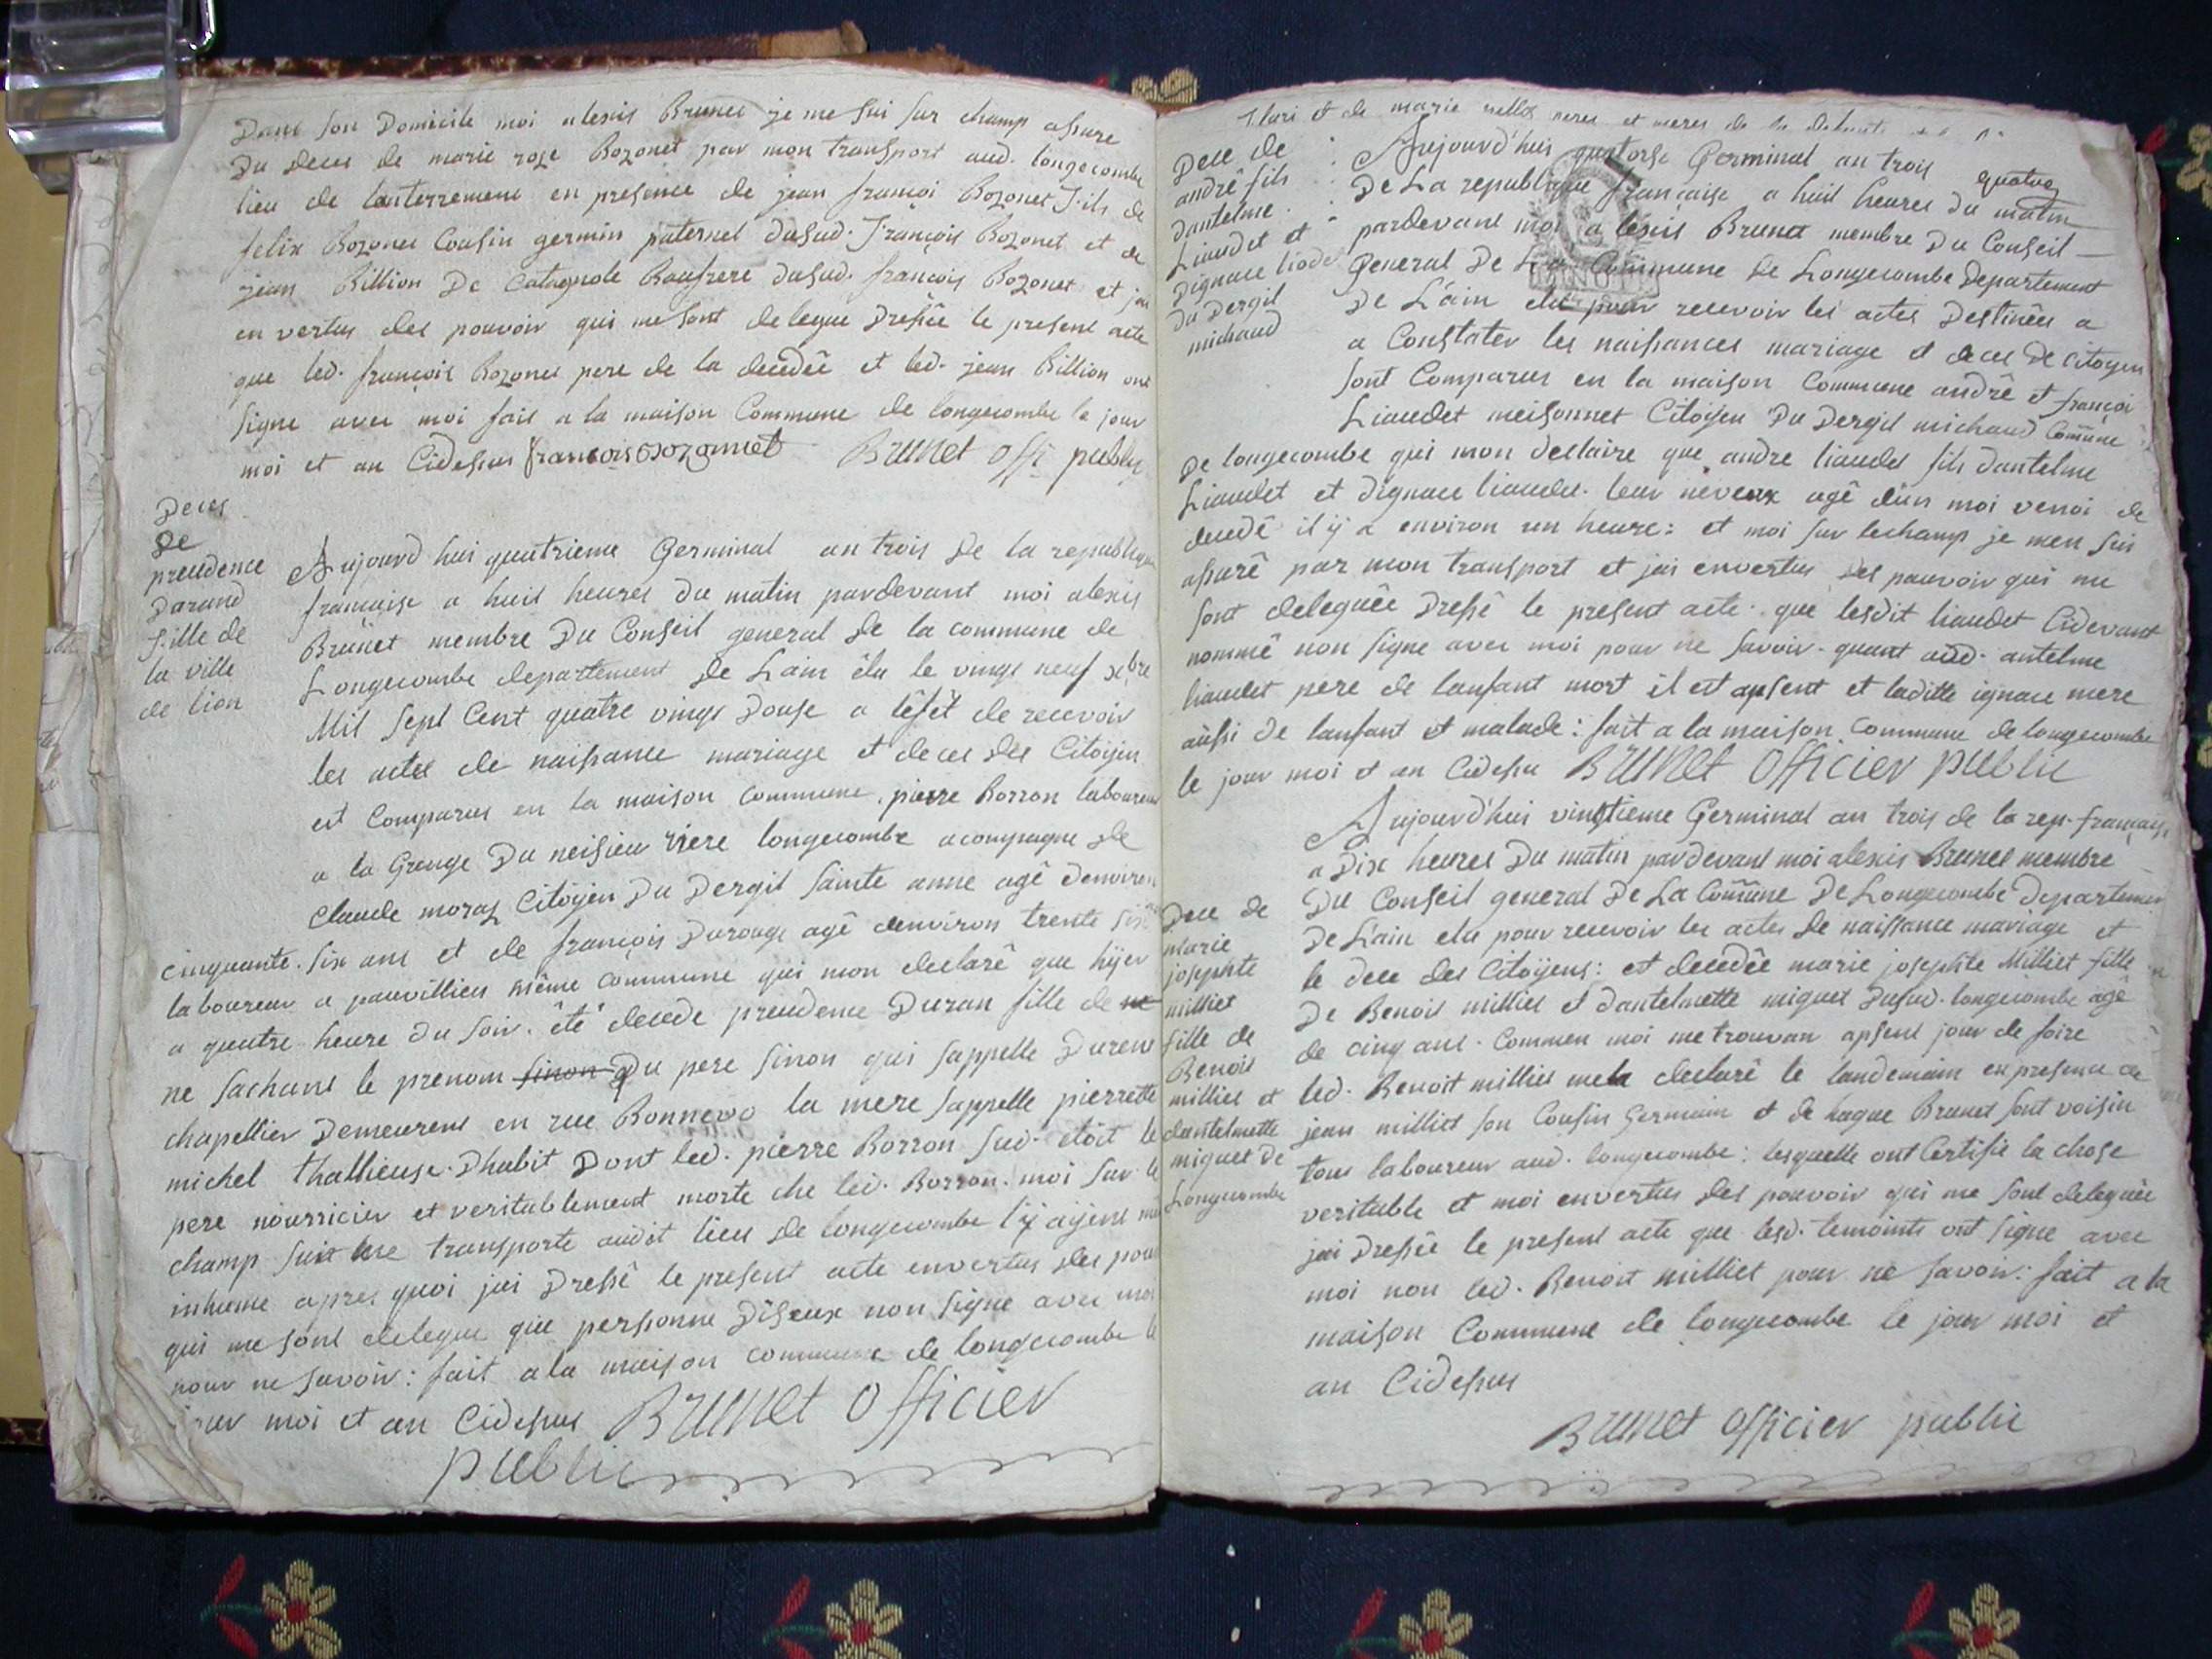 Dans son Domicile moi alexis Brunet je me sui sur champ assure
Du deces de marie rose Bozonet par mon transport aud. longecombe
lieu de lanterrement en presence de jean françoi Bozonet fils de
felix Bozonet Cousin germin paternel dusud. françois Bozonet et de
jean Billion De Catagnole Baufrere dusud. françois Bozonet et jai
en vertus des pouvoir qui me sont delegue Dressée le present acte
que led. françois Bozonet pere de la decedée et led. jean Billion ont
signe avec moi fait a la maison Commune de longecombe le jour
moi et an Cidessus francois Bozonnet Brunet offi public
Deces
De
preudence
Durand
fille de
la ville
de lion
Aujourd hui quatrieme Germinal an trois de la republique
francaise a huit heures du matin pardevant moi alexis
Brunet membre Du Conseil general de la commune de
Longecombe departement de Lain élu le vingt neuf xbre
Mil sept Cent quatre vingt Douse a léfét de recevoir
les actes de naissance mariage et deces des Citoÿen
est Comparus en la maison commune pierre Borron laboureur
a la Grange Du neisieu riere longecombe acompagne de
Claude moraz Citoÿen Du Dergit sainte anne agé denviron
cinquante six ans et de françois Durouge agé denviron trente six
laboureur a pauvillieu même commune qui mon declaré que hÿer
a quatre heure du soir. été decede preudence Duran fille de ne
ne sachant le prenom sinon Du pere sinon qui sappelle Duren
chapellier Demeurent en rue Bonnevo la mere sappelle pierrette
michel thallieuse Dhabit Dont led. pierre Borron sud. étoit le
pere nourricier et veritablement morte che led. Borron. moi sur le
champ suit me transporte audit lieu de longecombe lÿ aÿent
inhume apres quoi jai Dressé le present acte envertus des pou
qui me sont delegue que perssonne Diseux non signe avec moi
pour ne savoir: fait a la maison commune de longecombe le
jour moi et an Cidessus Brunet officier
public
et de marie peres et meres de
Dece de
andré fils
dantelme
Liaudet et
Dignace liode
du Dergit
michaud
Aujourd'hui quatorse Germinal an trois
quatorz
De La republique française a huit heures du matin
pardevant moi alexis Brunet membre Du Conseil
General De La Commune de Longecombe Departement
De L'ain elu pour recevoir les actes Destinées a
a Constater les naissances mariage et deces De Citoyen
sont Comparus en la maison Commune andré et françoi
Liaudet meisonnet Citoÿen Du Dergit michaud Comûne
De longecombe qui mon declaire que andre liaudet fils dantelme
Liaudet et dignace liaudet. leur neveux agé dun moi venoi de
decedé il ÿ a environ un heure: et moi sur lechamp je men sui
assuré par mon transport et jai envertus des pouvoir qui me
sont deleguée Dressé le present acte. que lesdit liaudet Cidevant
nommé non signe avec moi pour ne savoir. quant aud. antelme
liaudet pere de lanfant mort il est apsent et laditte ignace mere
aussi de lanfant et malade: fait a la maison commune de longecombe
le jour moi et an Cidessu Brunet officier public
Dece de
marie
josephte
milliet
fille de
Benoit
milliet et
dantelmette
miguet De
Longecombe
Aujourd'hui vingtieme Germinal an trois de la rep. française
a Dix heures Du matin pardevant moi alexis Brunet membre
Du Conseil general De La Comûne De Longecombe Departemen
De L'ain elu pour recevoir les actes de naissance mariage et
le dece des Citoÿens: et decedée marie josephte Milliet fille
De Benoit milliet et dantelmette miguet Dusud. longecombe agé
de cinq ans. Commen moi me trouvan apsent jour de foire
led. Benoit milliet mela declaré le landemain en presence de
jean milliet son Cousin Germain et de hugue Brunet sont voisin
tous laboureur aud. longecombe: lesquelle ont Certifie la chose
veritable et moi envertus des pouvoir qui me sont deleguée
jai Dressée le present acte que lesd. temointe ont signe avec
moi non led. Benoit milliet pour ne savoir: fait a la
maison Commune de longecombe le jour moi et
an Cidessus
Brunet officier public